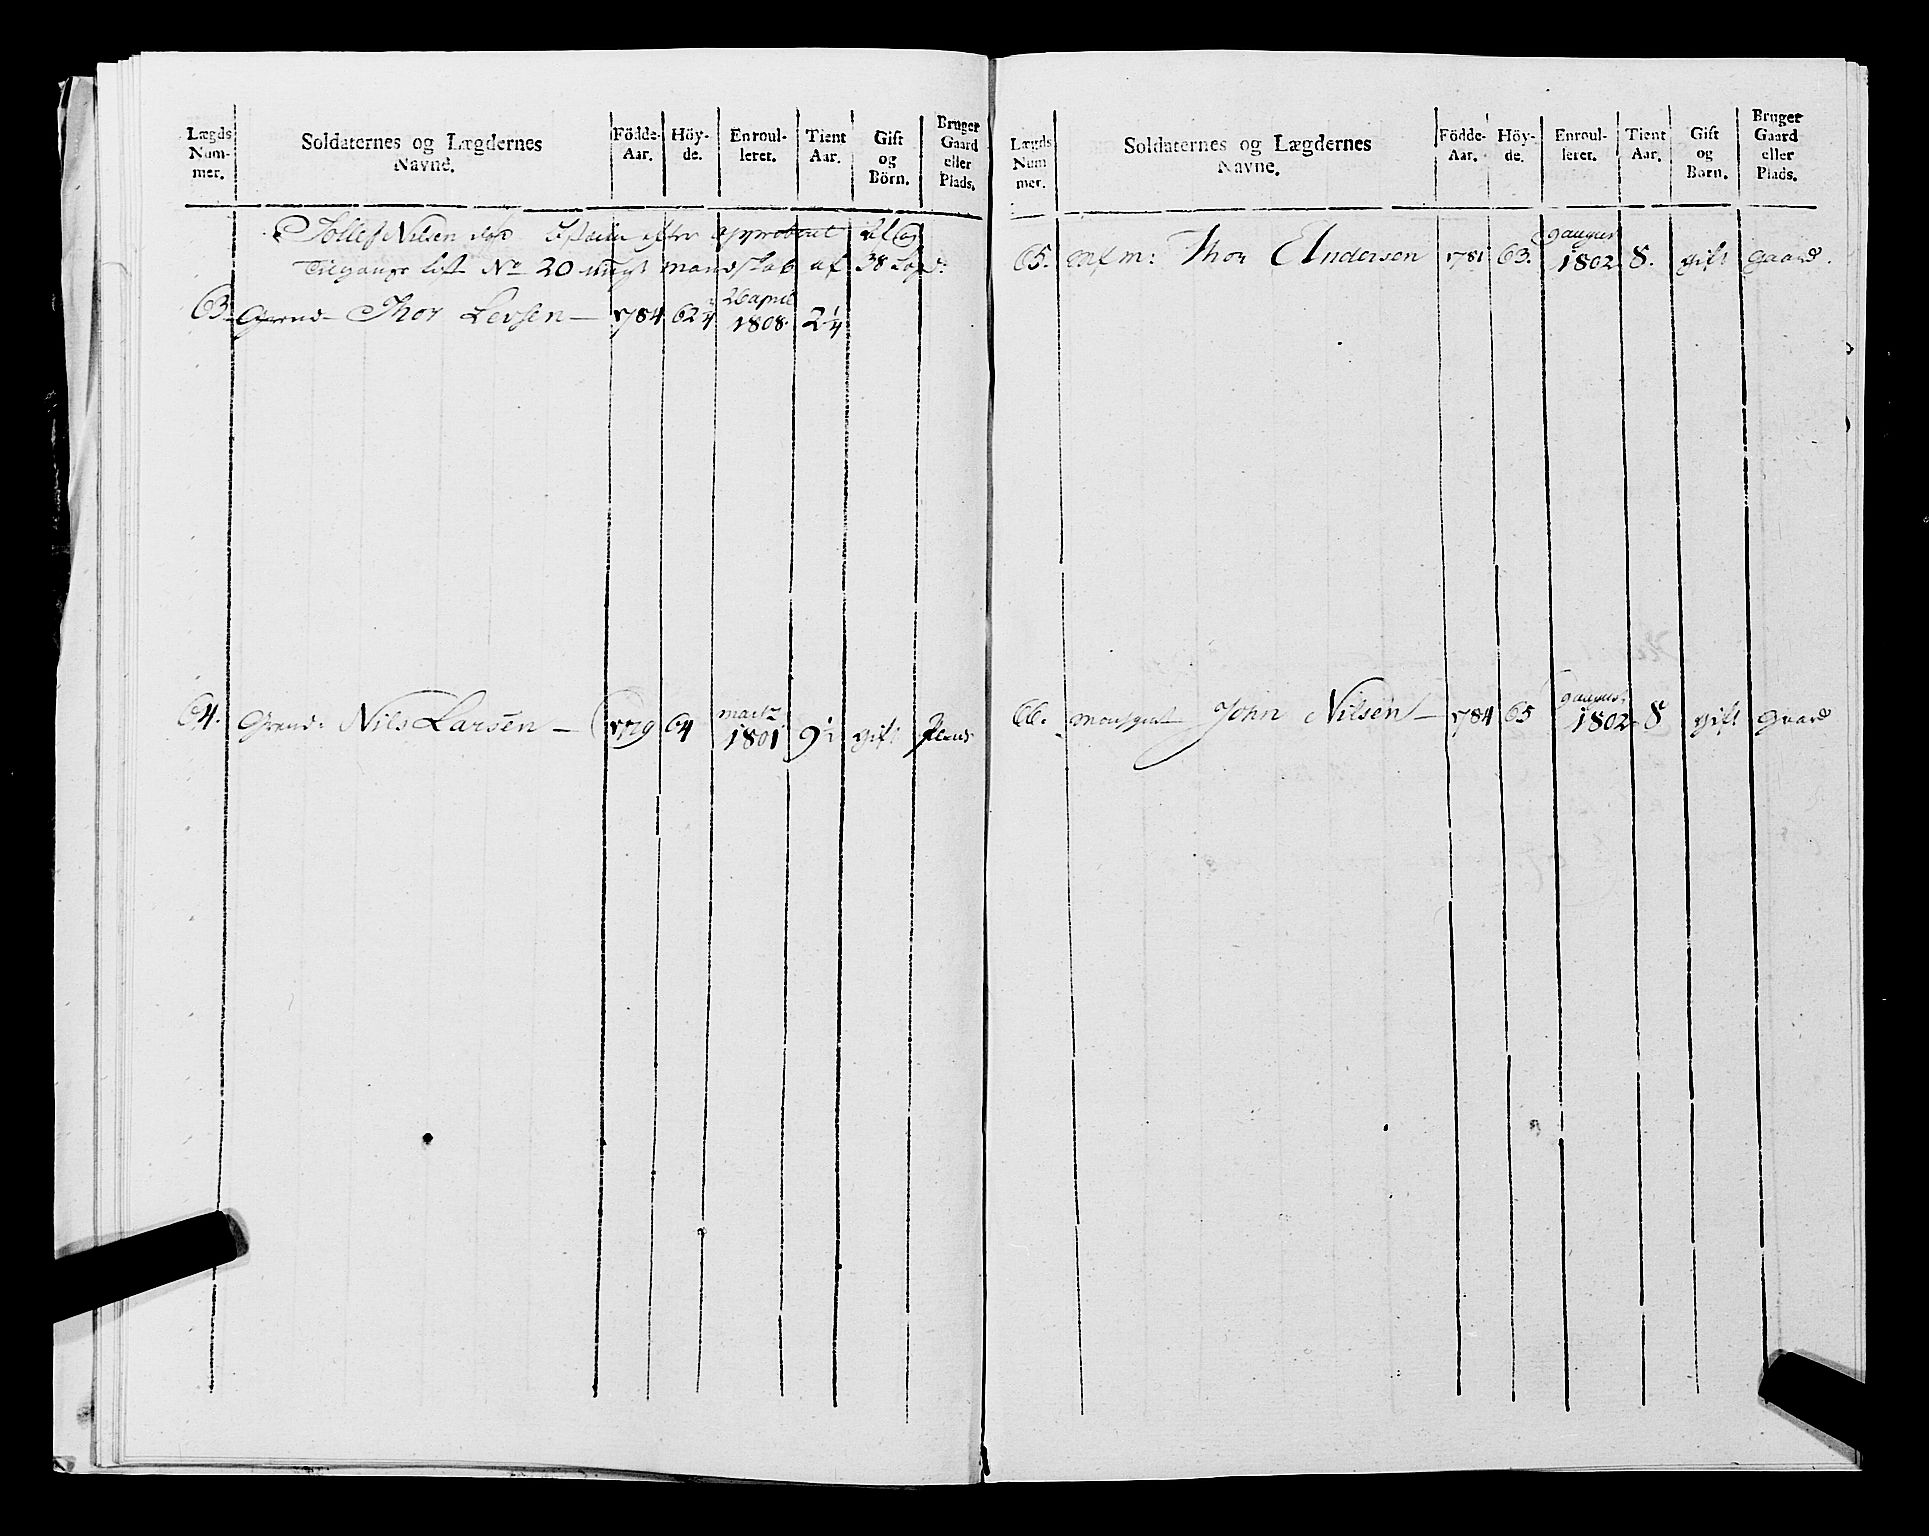 Lægds Num- mer. Soldaternes og Lægdernes Navne. Födde- Aar. Höy- de. Enroul- leret. Tient Aar. Gift og Börn. Bruger Gaard eller Plads.
Tollef Nilsen død efter approberet
Tilgangs list No 20 mandskab af 38
26 april
63. Grend- Thor Levsen — 784 62¼ 1808. 2¼
martz
64. Grend: Nils Larsen — 1779 64 1801 9½ gift Plads
Lægds Num mer. Soldaternes og Lægdernes Navne. Födde- Aar. Höy- de. Enroul- leret. Tient Aar. Gift og Børn. Bruger Gaard eller Plads.
9 august
65. Thor Andersen 781 63. 1802 8. gift gaard.
9 august
66. John Nilsen — 784 65 1802 8 gift gaard